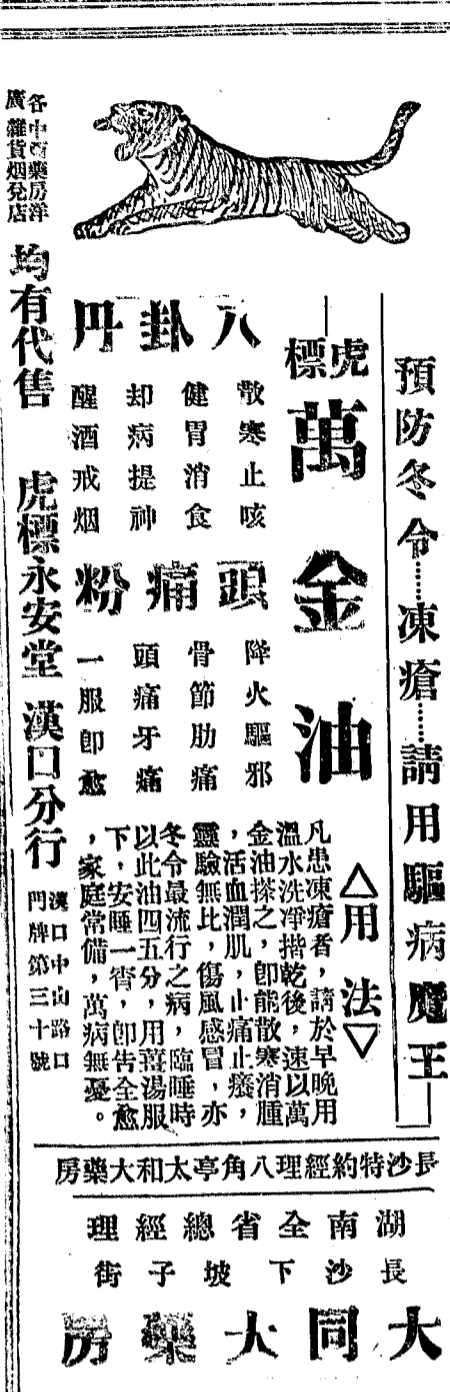 預防冬令……凍瘡……請用驅病魔王
虎標
萬金油
△用法▽
凡患凍瘡者，請於早晚用
溫水洗淨揩乾後，速以萬
金油搽之，卽能散寒消腫
，活血潤肌，止痛止癢，
靈驗無比，傷風感冒，亦
冬令最流行之病，臨睡時
以此油四五分，用薑湯服
下，安睡一宵，卽告全愈
，家庭常備，萬病無憂。
八卦丹
散寒止咳
健胃消食
却病提神
醒酒戒烟
頭痛粉
降火驅邪
骨節肋痛
頭痛牙痛
一服卽愈
各中西藥房洋
廣雜貨烟兌店
均有代售
虎標永安堂漢口分行
漢口中山路口
門牌第三十號
長沙特約經理八角亭太和大藥房
湖南全省總經理
長沙下坡子街
大同大藥房